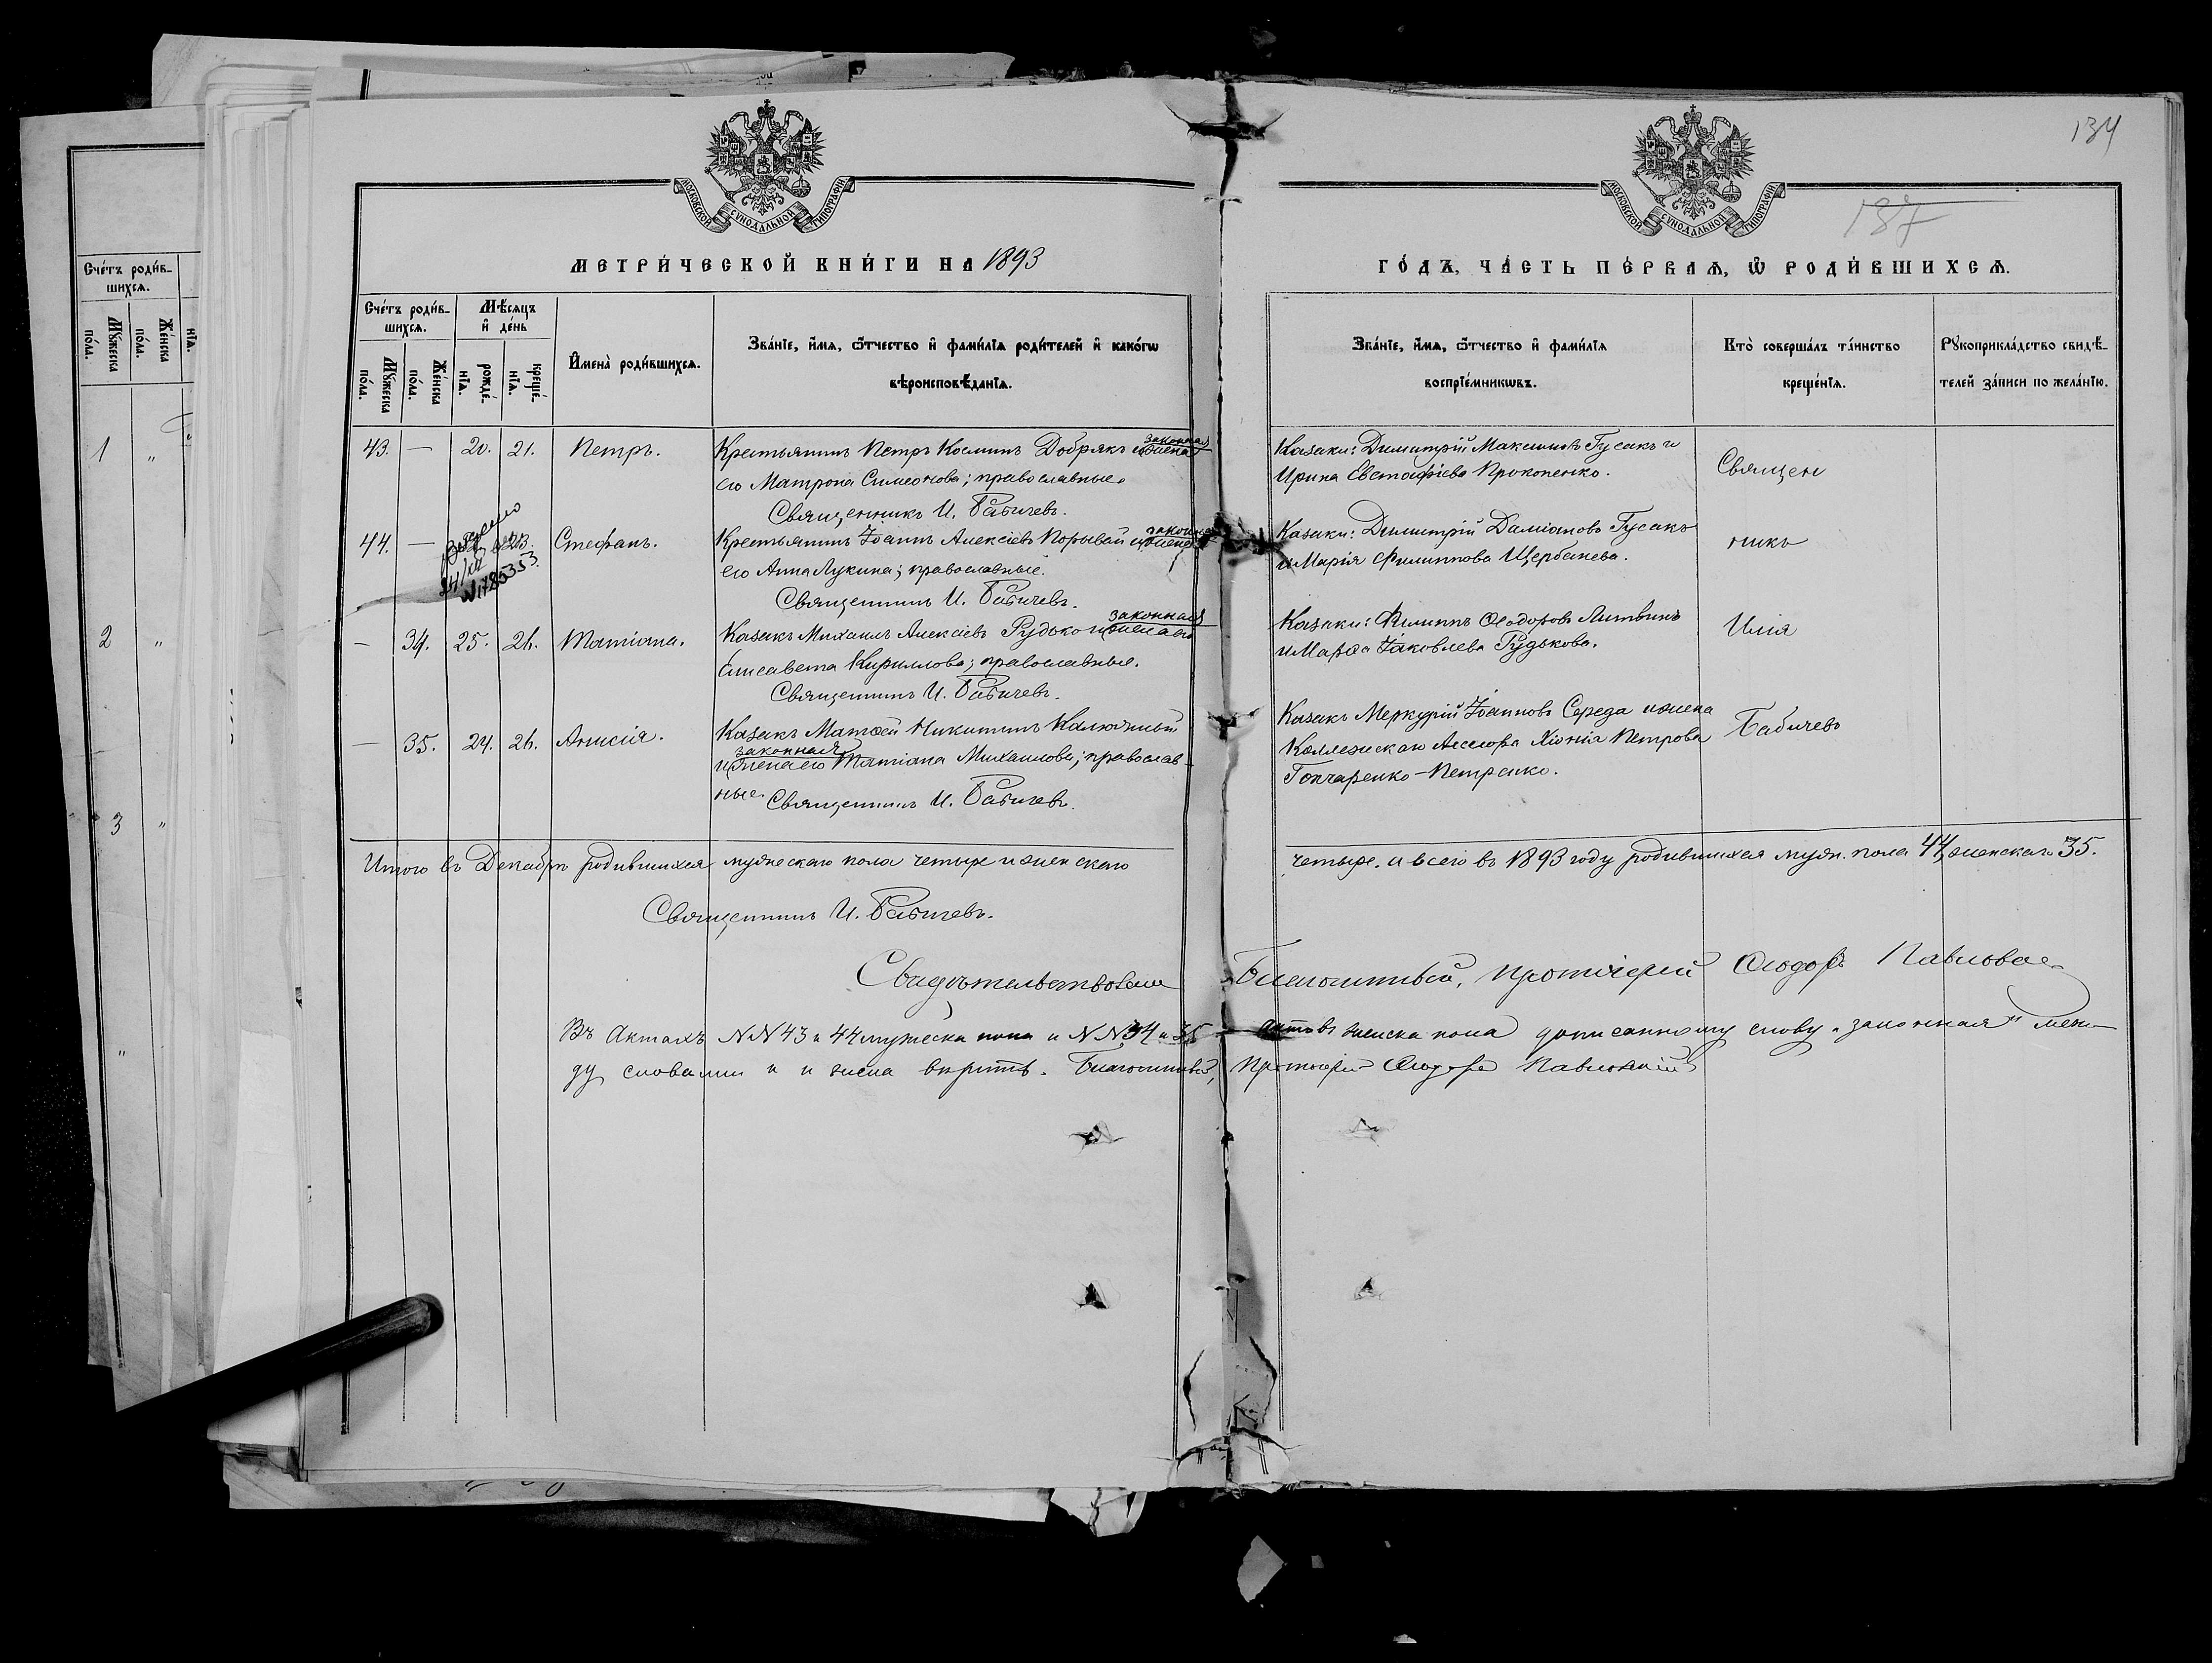 134
187
МОСКОВСКОЙ СѴНОДАЛЬНОЙ ТИПОГРАФІИ
МОСКОВСКОЙ СѴНОДАЛЬНОЙ ТИПОГРАФІИ
МЕТРИ́ЧЕСКОЙ КНИ́ГИ НА 1893
ГО́ДЪ, ЧА́СТЬ ПЕ́РВАЯ, Ѡ҆ РОДИ́ВШИХСЯ.
Сче́тъ роди́в-
шихся.
Мꙋ́жеска по́ла.
Же́нска по́ла.
Мѣ́сяцъ и҆ де́нь
рожде́-нїя.
креще́-нїя.
И҆мена̀ роди́вшихся.
Зва́нїе, и҆́мя, ѻ҆́тчество и҆ фами́лїя роди́телей и҆ како́гѡ
вѣроисповѣ́данїя.
Зва́нїе, и҆́мя, ѻ҆́тчество и҆ фами́лїя
воспрїе́мникѡвъ.
Кто̀ соверша́лъ та́инство
креще́нїя.
Рꙋкоприкла́дство свидѣ́-
телей за́писи по жела́нїю.
Сче́тъ роди́в-
шихся.
Мꙋ́жеска по́ла.
Же́нска по́ла.
нїя.
1 "
2 "
3 "
"
43. — 20. 21. Петръ.
Крестьянинъ Петръ Косминъ Добрякъ и законная жена
его Матрона Симеонова; православные.
Священникъ И. Бабичевъ.
Казаки: Димитрій Максимовъ Гусакъ и
Ирина Евстафіева Прокопенко.
Священ
44. — 23. Стефанъ.
24/XII
№1785353
Крестьянинъ Іоаннъ Алексіевъ Порывай и законная жена
его Анна Лукина; православные.
Священникъ И. Бабичевъ.
Казаки: Димитрій Даміановъ Гусакъ
и Марія Филиппова Щербанева.
никъ
— 34. 25. 26. Татіана.
Казакъ Михаилъ Алексіевъ Рудько и законная жена его
Елисавета Кириллова; православные.
Священникъ И. Бабичевъ.
Казаки: Филиппъ Ѳеодоровъ Литвинъ
и Марѳа Іаковлева Рудькова.
Илія
— 35. 24. 26. Анисія.
Казакъ Матѳей Никитинъ Калюжный
и законная жена его Татіана Михаилова; православ-
ные. Священникъ И. Бабичевъ.
Казакъ Меркурій Іоанновъ Середа и жена
Коллежскаго Ассесора Хіонія Петрова
Гончаренко-Петренко.
Бабичевъ
Итого въ Декабрѣ родившихся мужескаго пола четыре и женскаго
четыре. а всего въ 1893 году родившихся муж. пола 44, женскаго 35.
Священникъ И. Бабичевъ.
Свидѣтельствовалъ Благочинный, протоіерей Ѳеодоръ
Въ Актахъ NN 43 и 44 мужеска пола и NN 34 и 35 женска пола дописанному слову „законная" меж-
ду словами и и жена вѣрить. Благочинный, Протоіерей Ѳеодоръ